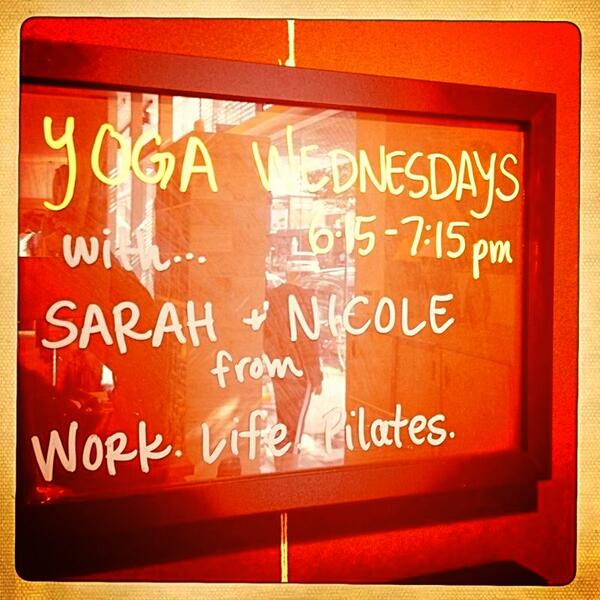 YOGA WEDNESDAYS
6:15-7:15 pm
with...
SARAH + NICOLE
from
Work. Life. Pilates.